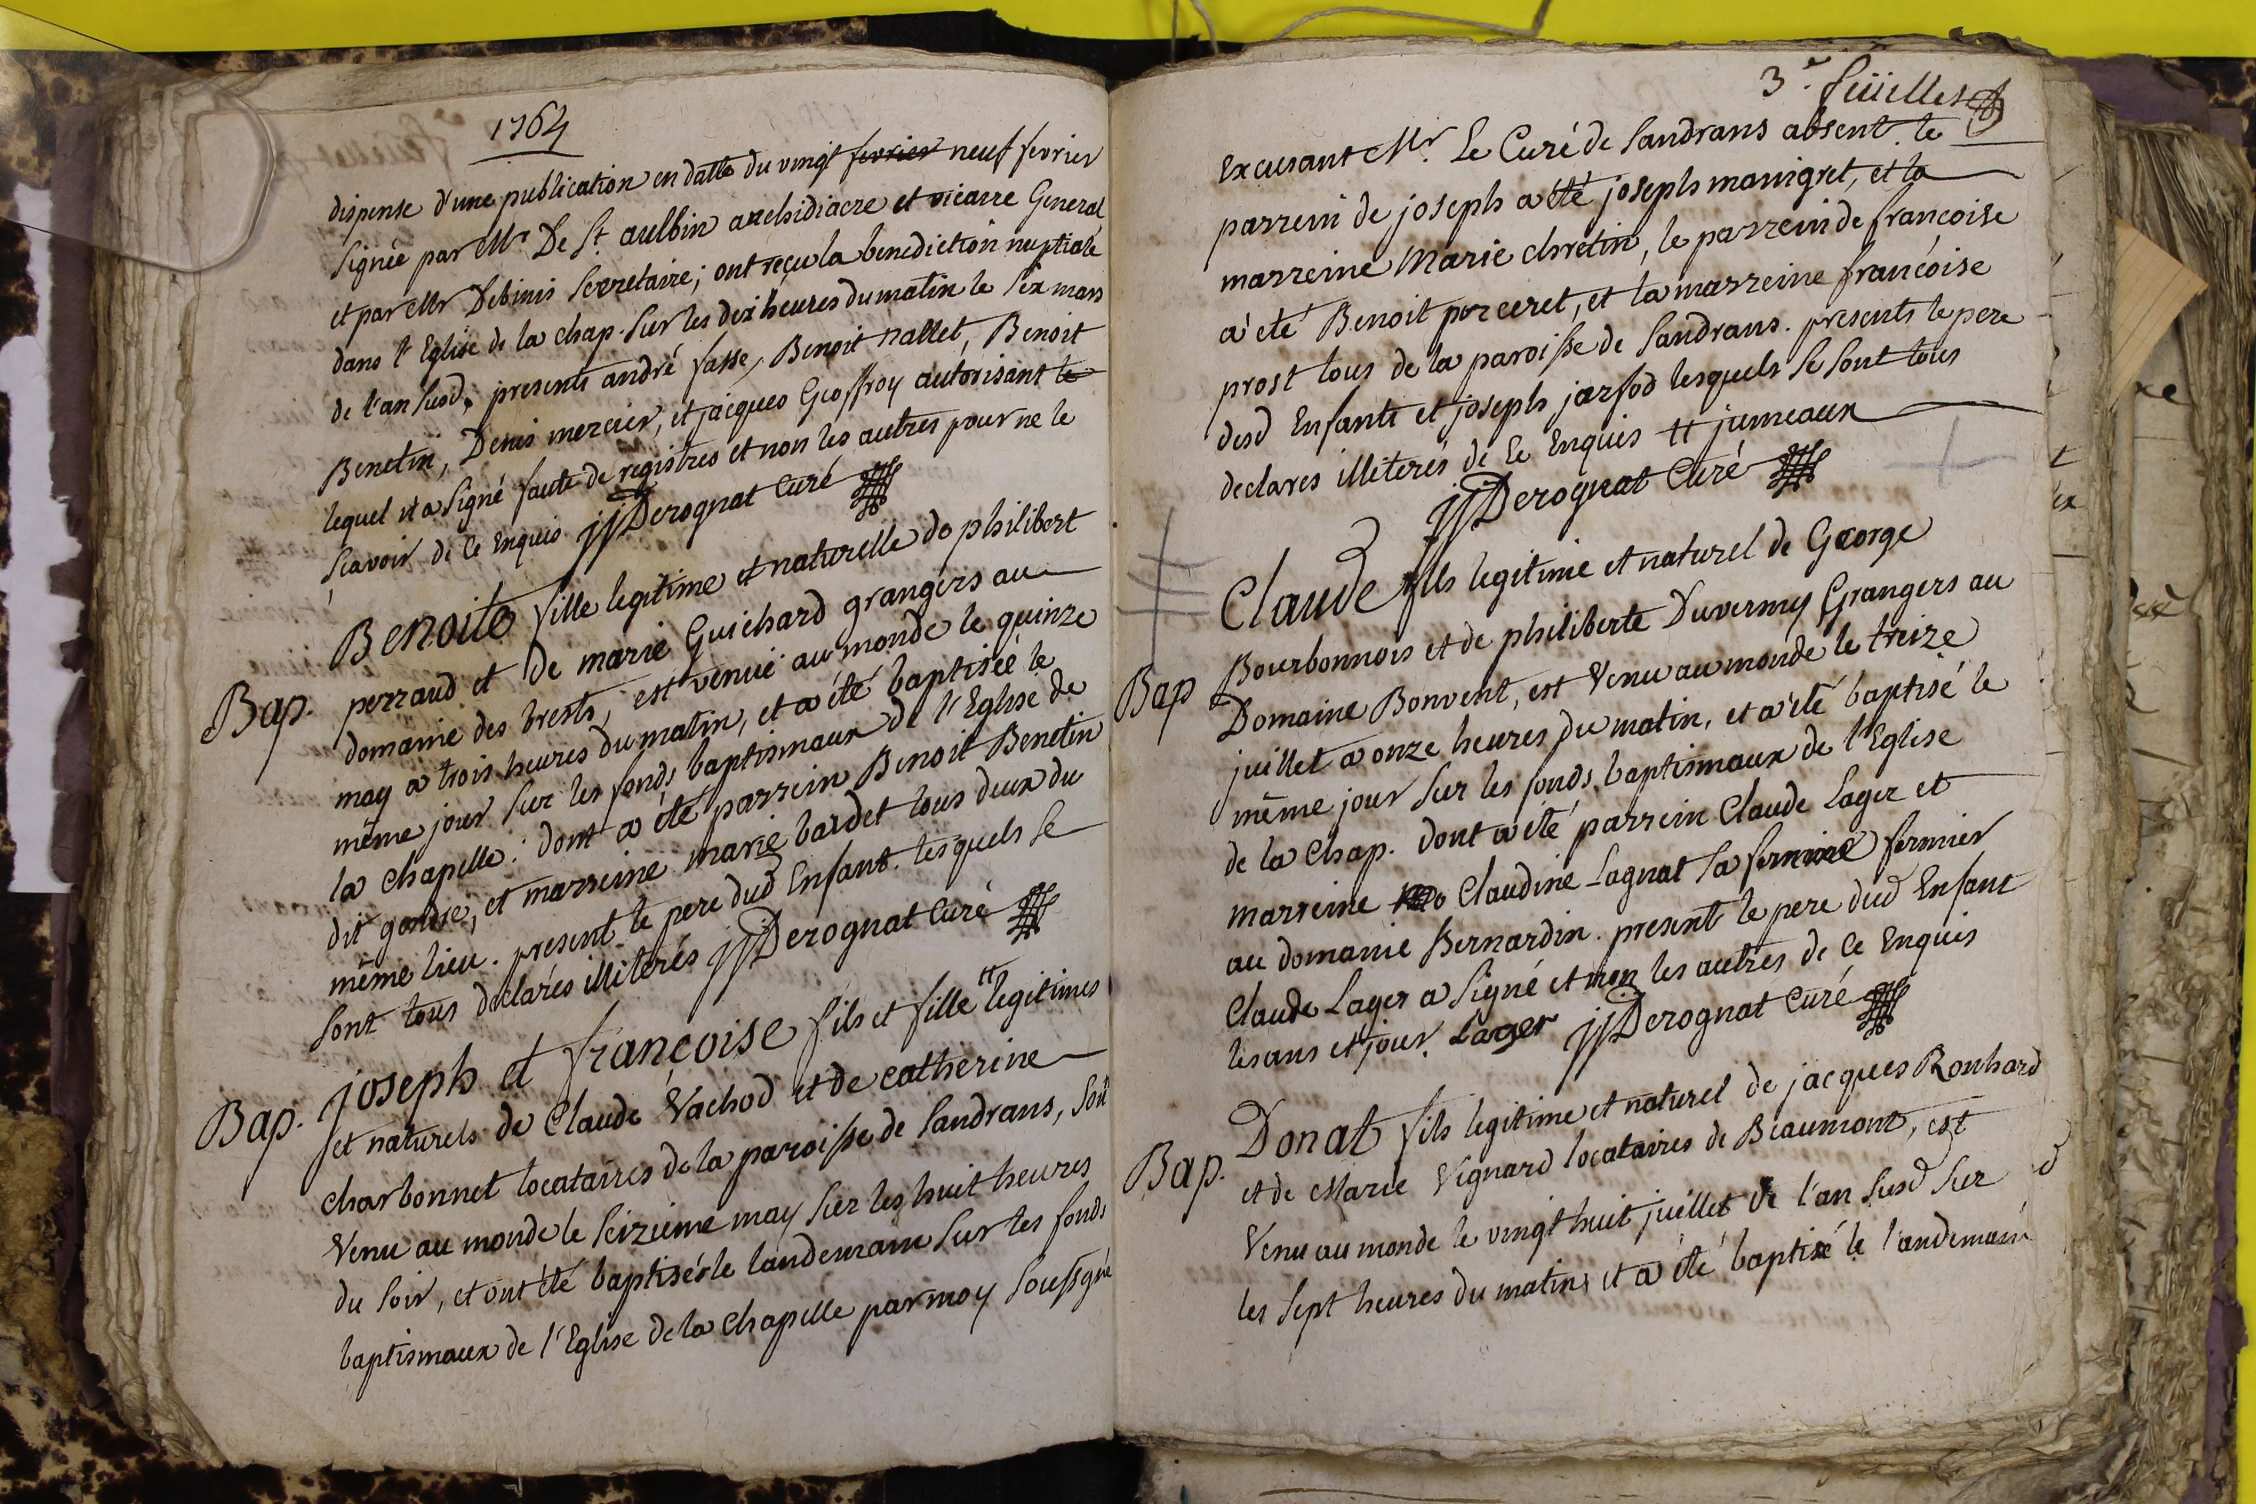 1764
dispense d'une publication en datte du vingt fevrier neuf fevrier
signée par Mr De St aulbin archidiacre et vicaire General
et par Mr Debinis Secretaire; ont reçu la benediction nuptiale
dans l'Eglise de la chap. sur les dix heures du matin le six mars
de l'an susd. presents andré fasse, Benoit nallet, Benoit
Benetin, Denis mercier, et jacques Geoffroy autorisant le
lequel n'a signé faute de registres et non les autres pour ne le
scavoir de ce enquis jjDerognat Curé
Benoite fille legitime et naturelle de philibert
Bap. perraud et de marie Guichard grangers au
domaine des brests, est venüe au monde le quinze
may a trois heures du matin, et a été baptisée le
même jour sur les fonds baptismaux de l'Eglise de
la chapelle: dont a été parrein Benoit Benetin
dit gondre, et marreine marie bardet tous deux du
même lieu. present le pere dud Enfant. lesquels se
sont tous declarés illiterés jjDerognat Curé
joseph et françoise fils et fille tt legitimes
Bap. et naturels de Claude Vachod et de catherine
charbonnet locataires de la paroisse de Sandrans, sont
Venu au monde le seizieme may sur les huit heures
du soir, et ont été baptisés le landemain sur les fonds
baptismaux de l'Eglise de la Chapelle par moy soussgné
3e. feüilles
Excusant Mr. Le Curé de Sandrans absent. le
parrein de joseph a été joseph monigret, et la
marreine Marie chretin, le parrein de francoise
a été Benoit perceret, et la marreine francoise
prost tous de la paroisse de Sandrans. presents le pere
desd Enfants et joseph jarfod lesquels se sont tous
declares illiterés de ce Enquis tt jumeaux
jjDerognat Curé
Claude fils legitime et naturel de George
Bap Bourbonnois et de philiberte Duvermy Grangers au
Domaine Bonvent, est Venu au monde le treize
juillet a onze heures du matin, et a été baptisé le
même jour sur les fonds baptismaux de l'Eglise
de la Chap. dont a été parrein Claude Lager et
marreine Claudine Lagnat sa femme fermier
au domaine Bernardin. present le pere dud Enfant
Claude Lager a signé et non les autres de ce Enquis
les ans et jour. Lager jjDerognat Curé
Donat fils legitime et naturel de jacques Ronhard
Bap. et de Marie Vignard locataires de Beaumont, est
Venu au monde le vingt huit juillet de l'an susd sur
les sept heures du matin, et a été baptisé le l'andemain